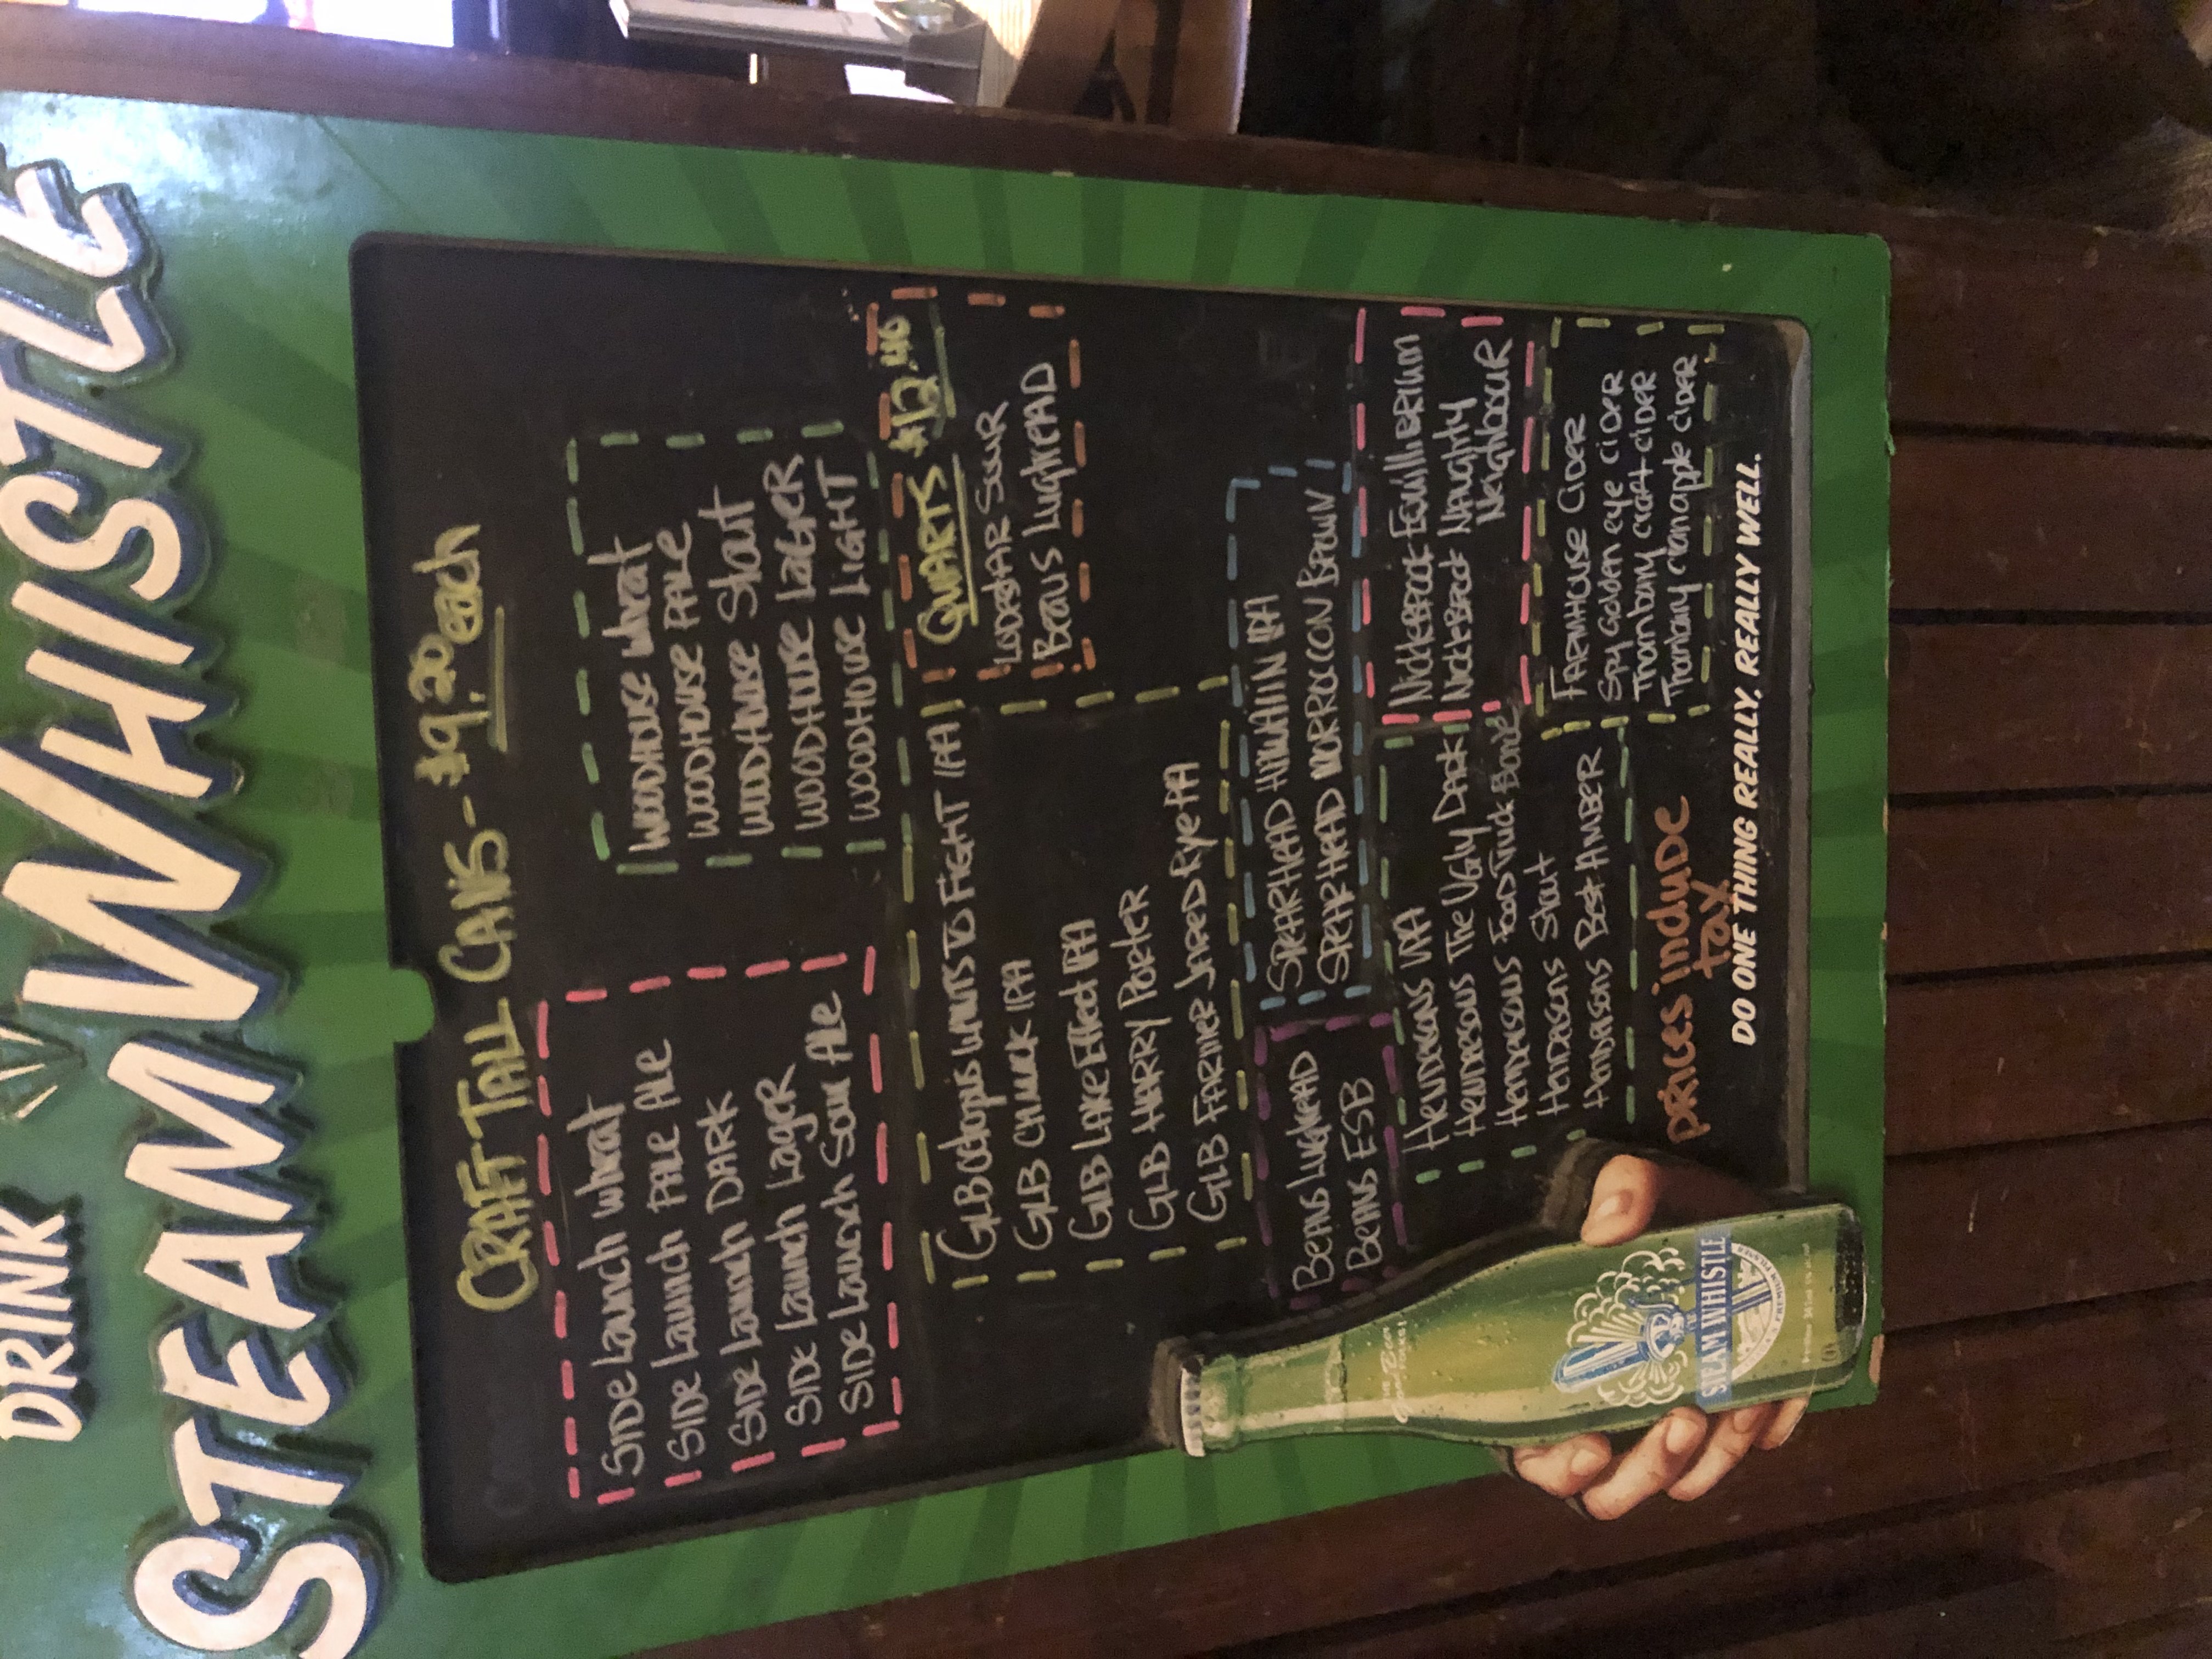 DRINK
STEAM WHISTLE
CRAFT TALL CANS - $9.20 each
SIDE LAUNCH wheat
SIDE LAUNCH PALE ALE
SIDE LAUNCH DARK
SIDE LAUNCH LAGER
SIDE LAUNCH SOUR ALE
WOODHOUSE wheat
WOODHOUSE PALE
WOODHOUSE Stout
WOODHOUSE LAGER
WOODHOUSE LIGHT
GLB Octopus WANTS TO FIGHT IPA
GLB CHUCK IPA
GLB LAKE EFFect IPA
GLB HARRY PORTER
GLB FARMER JARED Rye PA
QUARTS $12.46
LODESTAR SOUR
Beaus LugtreAD
SPEARHEAD HAWAIIN IPA
SPEARHEAD MORROCCON BROWN
Beaus LugtreAD
Beaus ESB
NickleBROOK EQuilliBRIUM
NickleBROOK NAughty
NeighbouR
Hendersons IPA
Hendersons The UGLY DArk
Hendersons Food Truck Blonde
Hendersons Stout
Hendersons Best AMBER
FARMHOUSE CiDER
Spy Golden eye ciDER
Thornbury craft ciDER
Thornbury cranapple ciDER
prices include
tax
DO ONE THING REALLY, REALLY WELL.
STEAM WHISTLE